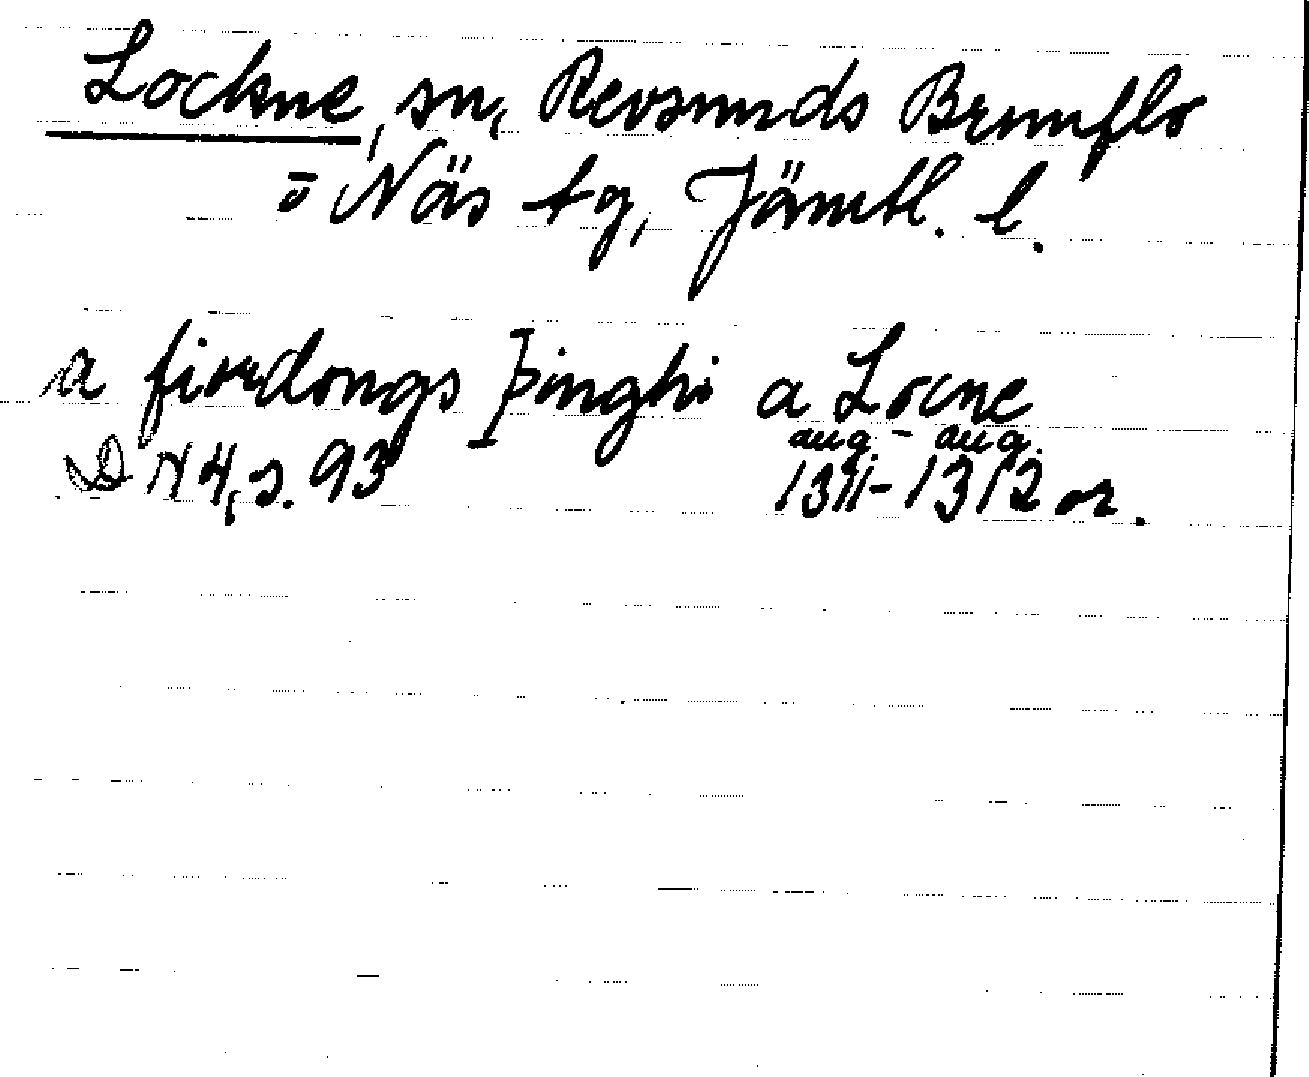 Lockne, sn, Revsunds Brunflo
o Näs tg, Jämtl. l.
a fiordongs þinghi a Locne
aug. - aug.
DN 4, s. 93 1311-1312 or.